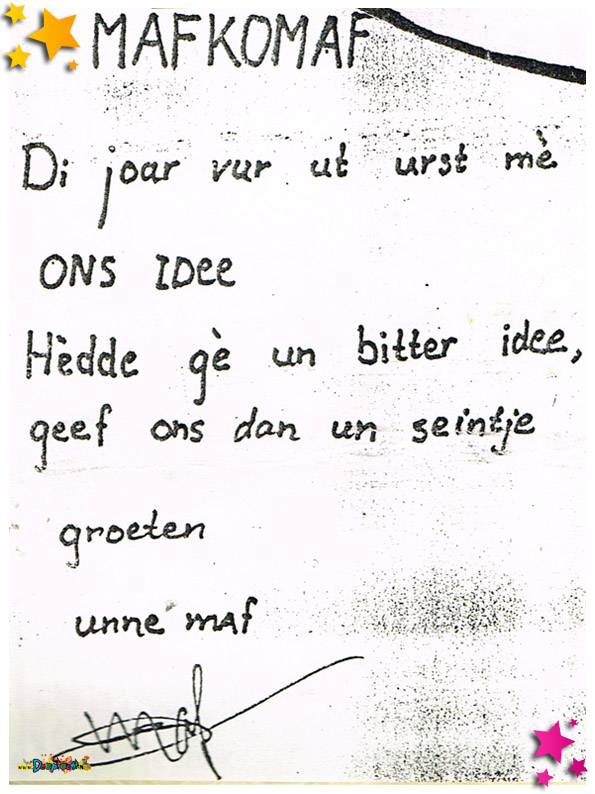 MAFKOMAF
Di joar vur ut urst mè
ONS IDee
Hèdde gè un bitter idee,
geef ons dan un seintje
groeten
unne maf